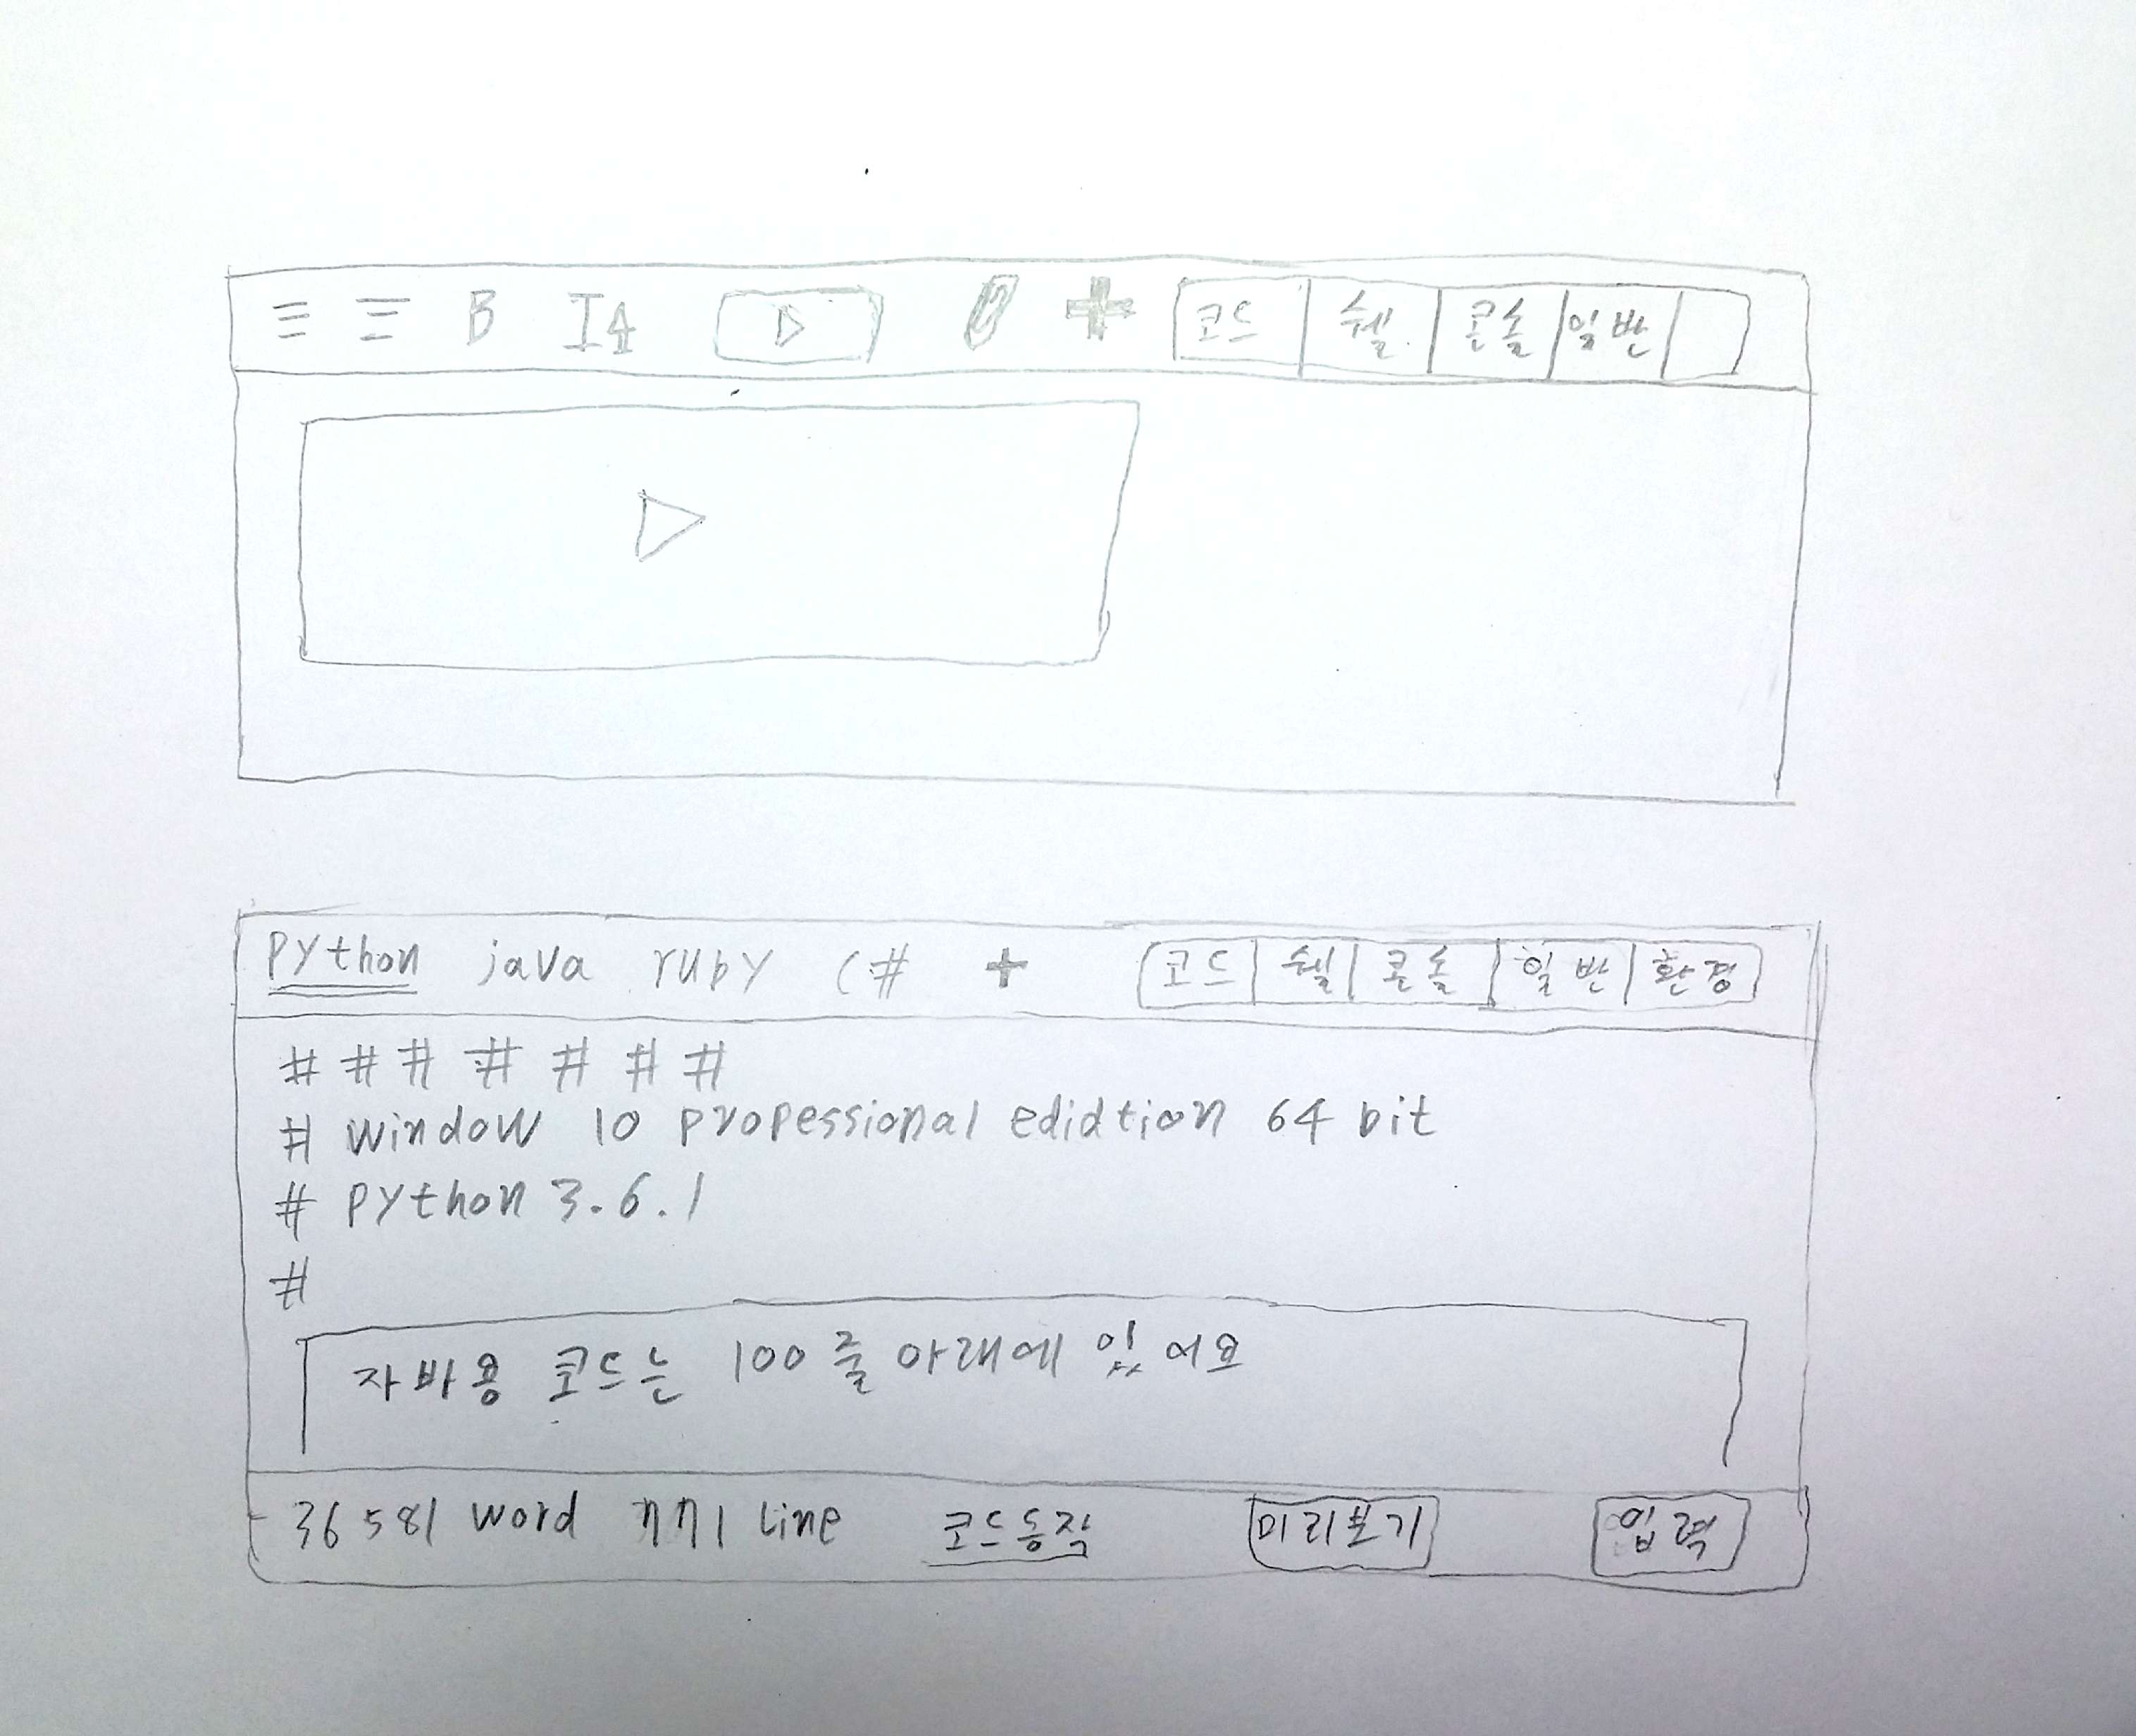 B 코드 쉘 콘솔 일반
python java ruby C# + 코드 쉘 콘솔 일반 환경
# # # # # # #
# window 10 propessional edidtion 64 bit
# python 3.6.1
#
자바용 코드는 100줄 아래에 있어요
36581 word 7771 Line 코드동작 미리보기 입력